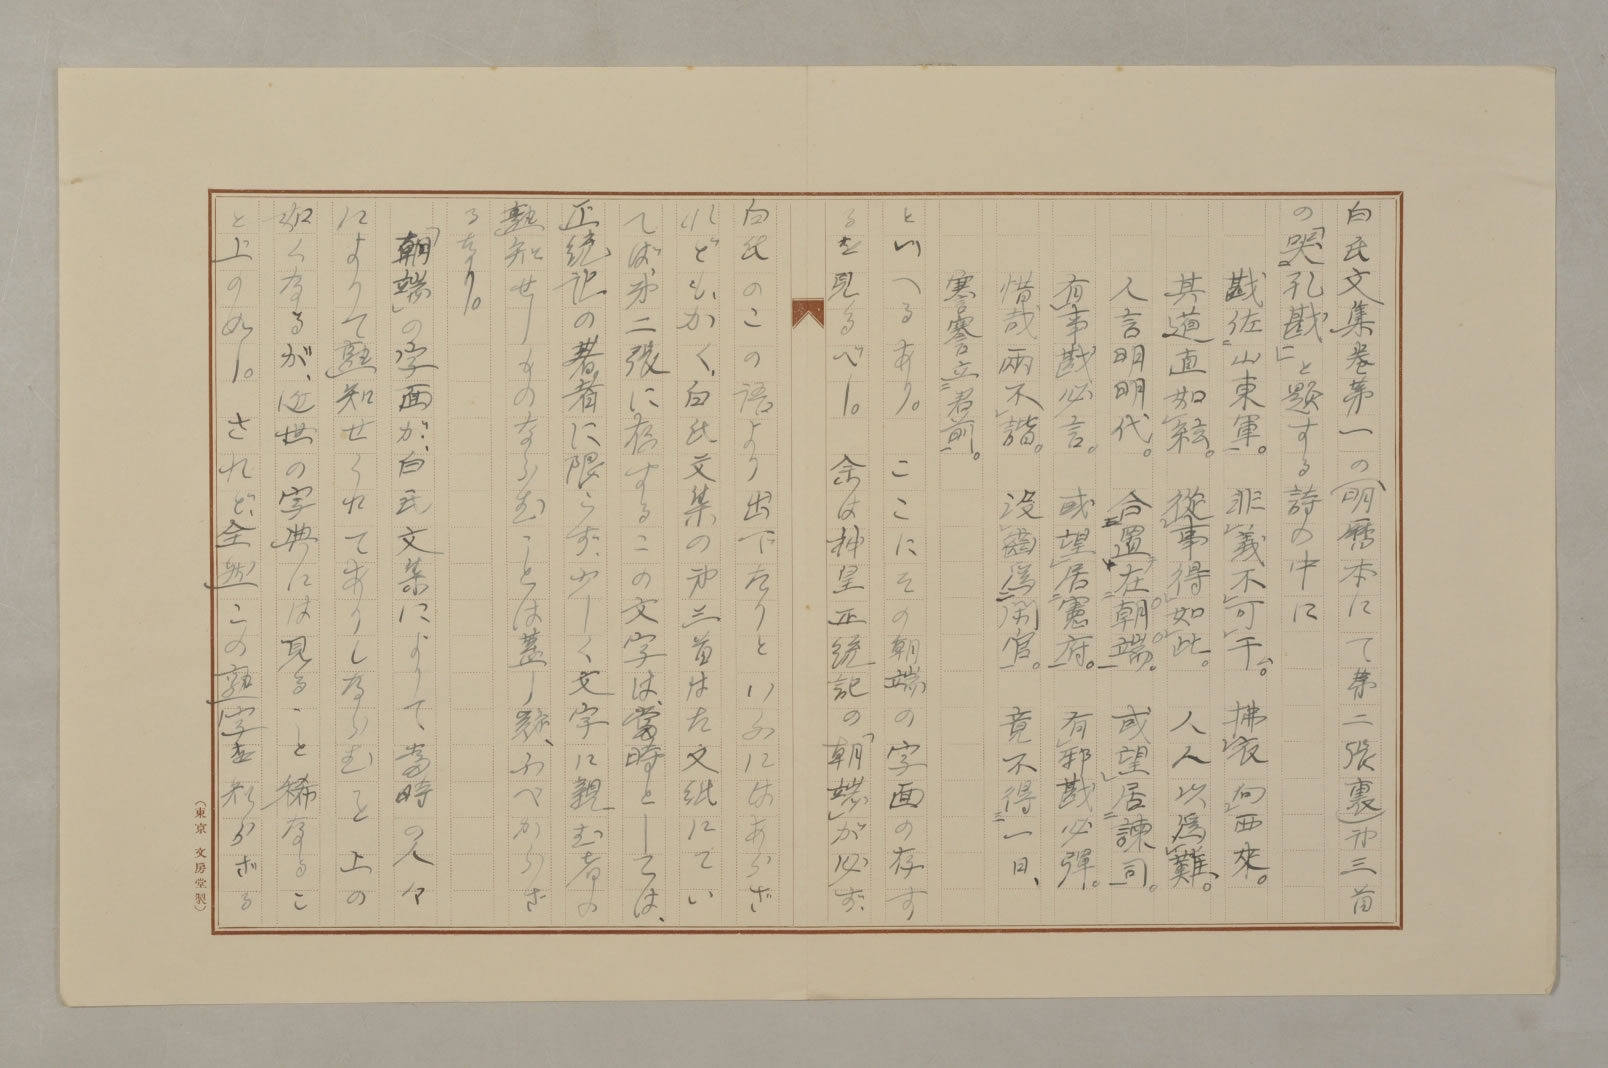 白氏文集巻第一の(明暦本にて第二張裏)第三首
の「哭孔戡」と題する詩の中に
戡佐山東軍。 非義不可干。 拂衣向西來。
其道直如絃。 從事得如此。 人人以爲難。
人言明明代。 合置在朝端。 或望居諫司。
有事戡必言。 或望居憲府。 有邪戡必彈。
惜哉兩不諧。 沒齒爲閑官。 竟不得一日、
謇謇立君前。
といへるあり。 ここにその朝端の字面の存す
るを見るべし。 余は神皇正統記の「朝端」が必ず、
白氏のこの語より出でたりといふにはあらざ
れどもかく、白氏文集の第三首はた文紙にてい
へば第二張に存するこの文字は、當時としては、
正統記の著者に限らず、少しく文字に親む者の
熟知せしものならむことは蓋し疑ふべからざ
るなり。
「朝端」の字面が、白氏文集によりて、當時の人々
によりて熟知せられてありしならむこと上の
如くなるが、近世の字典には見ること稀なるこ
と上の如し。 されど、全然この熟字を知らざる
(東京 文房堂製)